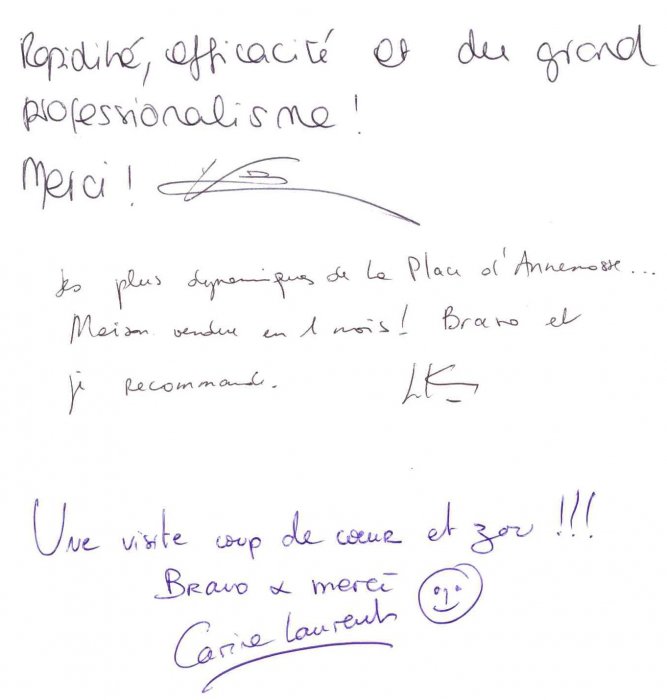 Rapidité, efficacité et du grand
professionalisme !
Merci !
Les plus dynamiques de la Place d'Annemasse...
Maison vendue en 1 mois ! Bravo et
je recommande. LK
Une visite coup de cœur et zou !!!
Bravo & merci
Carine Laurent